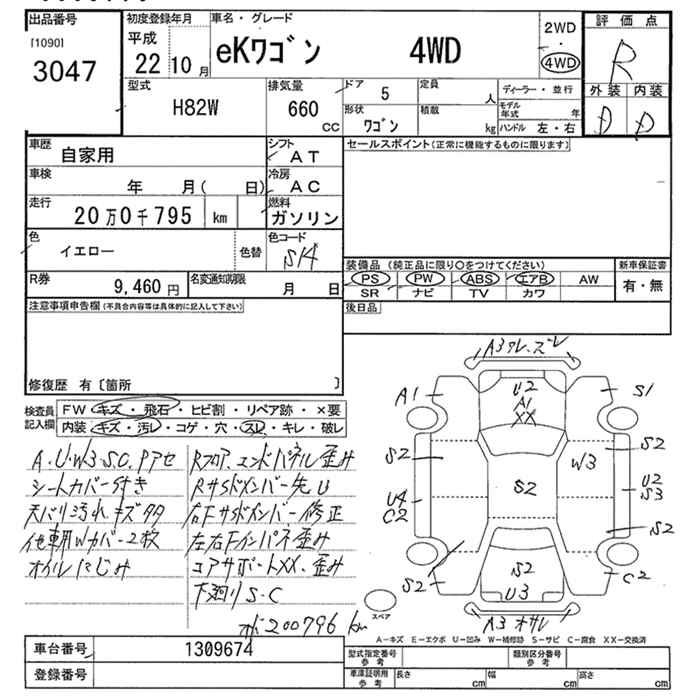 出品番号
[1090]
3047
初度登録年月
平成
22 10 月
車名・グレード
eKワゴン 4WD
2WD
・
4WD
評価点
R
外装 内装
D D
型式
H82W
排気量
660 cc
ドア
5
形状
ワゴン
定員
人
積載
kg
ディーラー・並行
モデル年式 年
ハンドル 左・右
車歴
自家用
シフト
AT
車検
年 月( 日)
冷房
AC
走行
20万0千795 km
燃料
ガソリン
色
イエロー
色替
色コード
S14
R券
9,460 円
名変通知期限
月 日
セールスポイント(正常に機能するものに限ります)
装備品 (純正品に限り○をつけてください)
新車保証書
PS PW ABS エアB AW
SR ナビ TV カワ
有・無
後日品
注意事項申告欄 (不具合内容等は具体的に記入して下さい)
修復歴 有〔箇所 〕
検査員記入欄
FW キズ・飛石・ヒビ割・リペア跡・×要
内装 キズ・汚レ・コゲ・穴・スレ・キレ・破レ
A.U.W3.S.C.Pアセ
シートカバー付き
天バリ汚れキズタタ
他車用Wカバー2枚
オイルにじみ
Rフロア、エンドパネル歪み
Rサイドメンバー先U
右Fサイドメンバー修正
左右Fインパネ歪み
コアサポートXX、歪み
下廻りS・C
メーター200796km
A3ワレ、ズレ
A1
U2
A1
XX
S1
S2
W3
S2
U4
C2
S2
U2
S3
S2
S2
S2
U3
C2
A3オサレ
スペア
A-キズ E-エクボ U-凹み W-補修跡 S-サビ C-腐食 XX-交換済
車台番号
1309674
登録番号
型式指定番号
参考
類別区分番号
参考
車庫証明用
参考
長さ cm
幅 cm
高さ cm